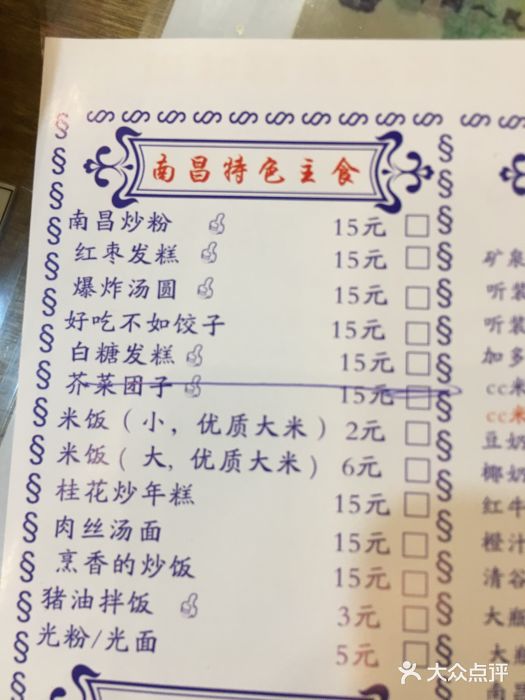 南昌特色主食
南昌炒粉 15元
红枣发糕 15元
爆炸汤圆 15元
好吃不如饺子 15元
白糖发糕 15元
芥菜团子 15元
米饭（小，优质大米） 2元
米饭（大，优质大米） 6元
桂花炒年糕 15元
肉丝汤面 15元
烹香的炒饭 15元
猪油拌饭 3元
光粉/光面 5元
矿泉
听装
听装
加多
cc米
cc米
豆奶
椰奶
红牛
橙汁
清谷
大瓶
大瓶
南昌
大众点评